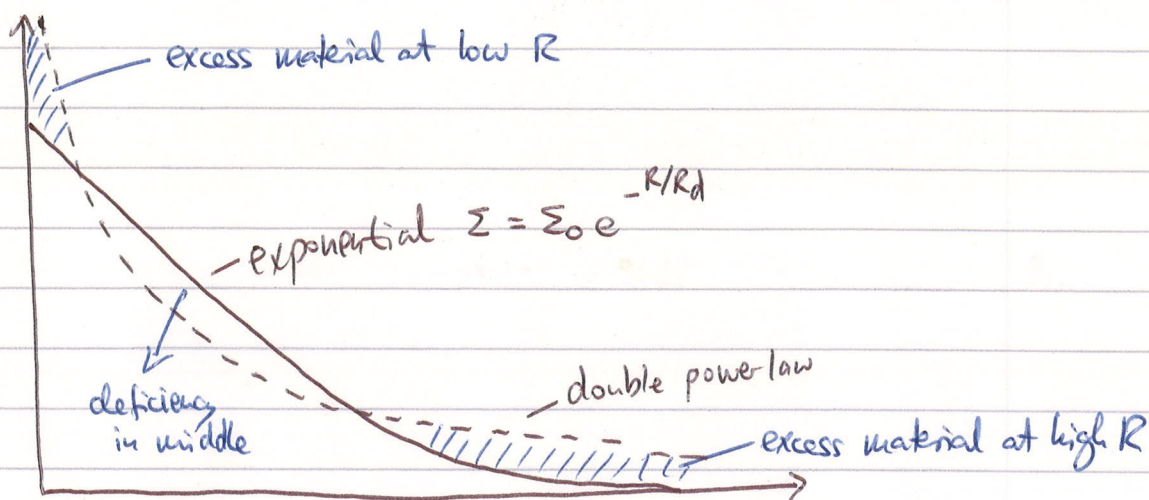 excess material at low R
exponential Σ = Σ₀ e^-R/Rd
deficiency
in middle
double powerlaw
excess material at high R